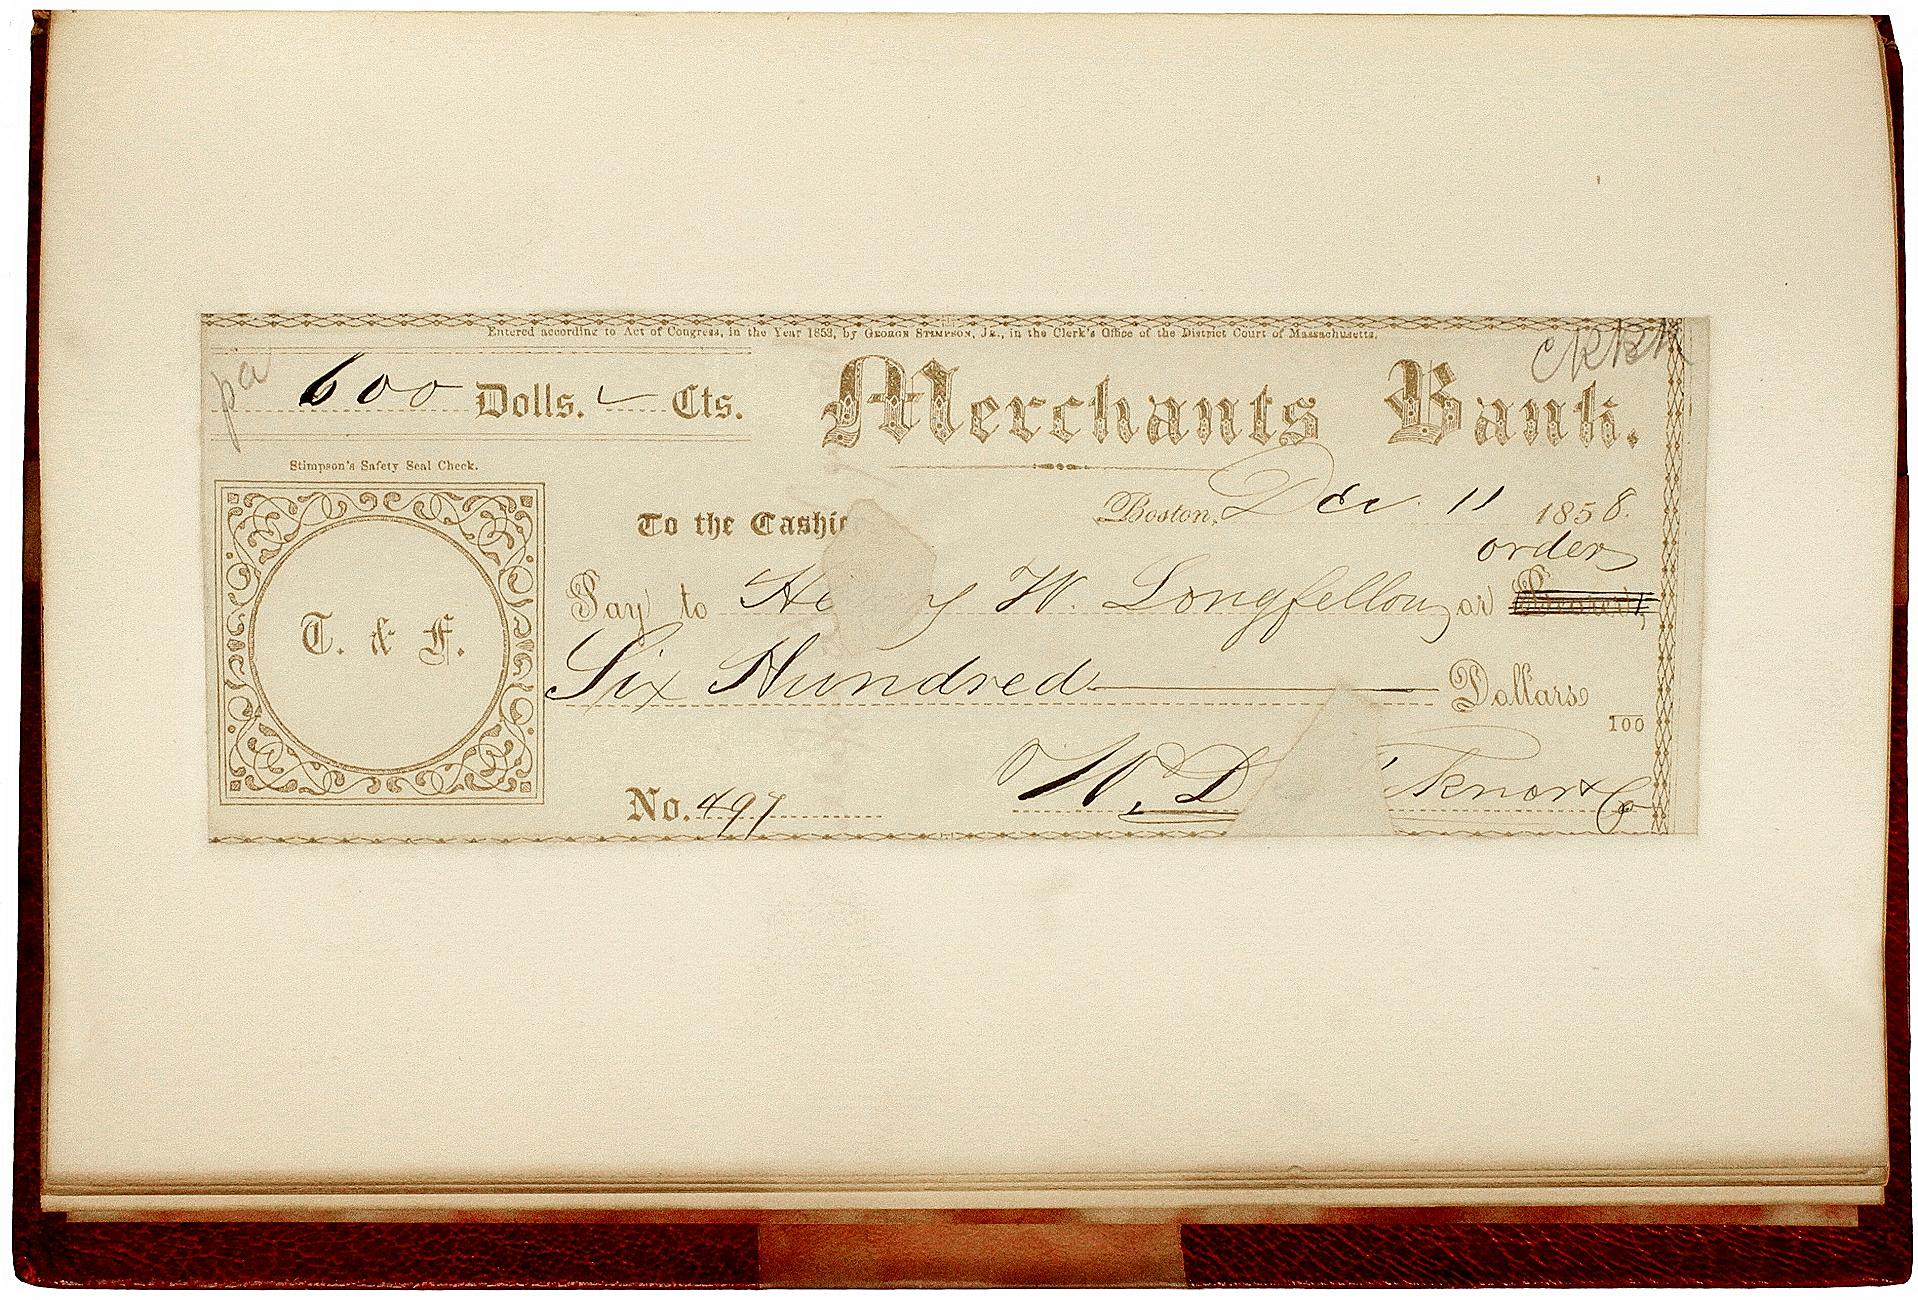 Entered according to Act of Congress, in the Year 1853, by GEORGE STIMPSON, JR., in the Clerk's Office of the District Court of Massachusetts.
pa
600 Dolls. Cts.
Merchants Bank.
Stimpson's Safety Seal Check.
Boston, Dec. 11 1858.
To the Cashie
order
Pay to He y W. Longfellow or Bearer,
T. & F.
Six Hundred Dollars
100
No. 497
W. D knor & Co